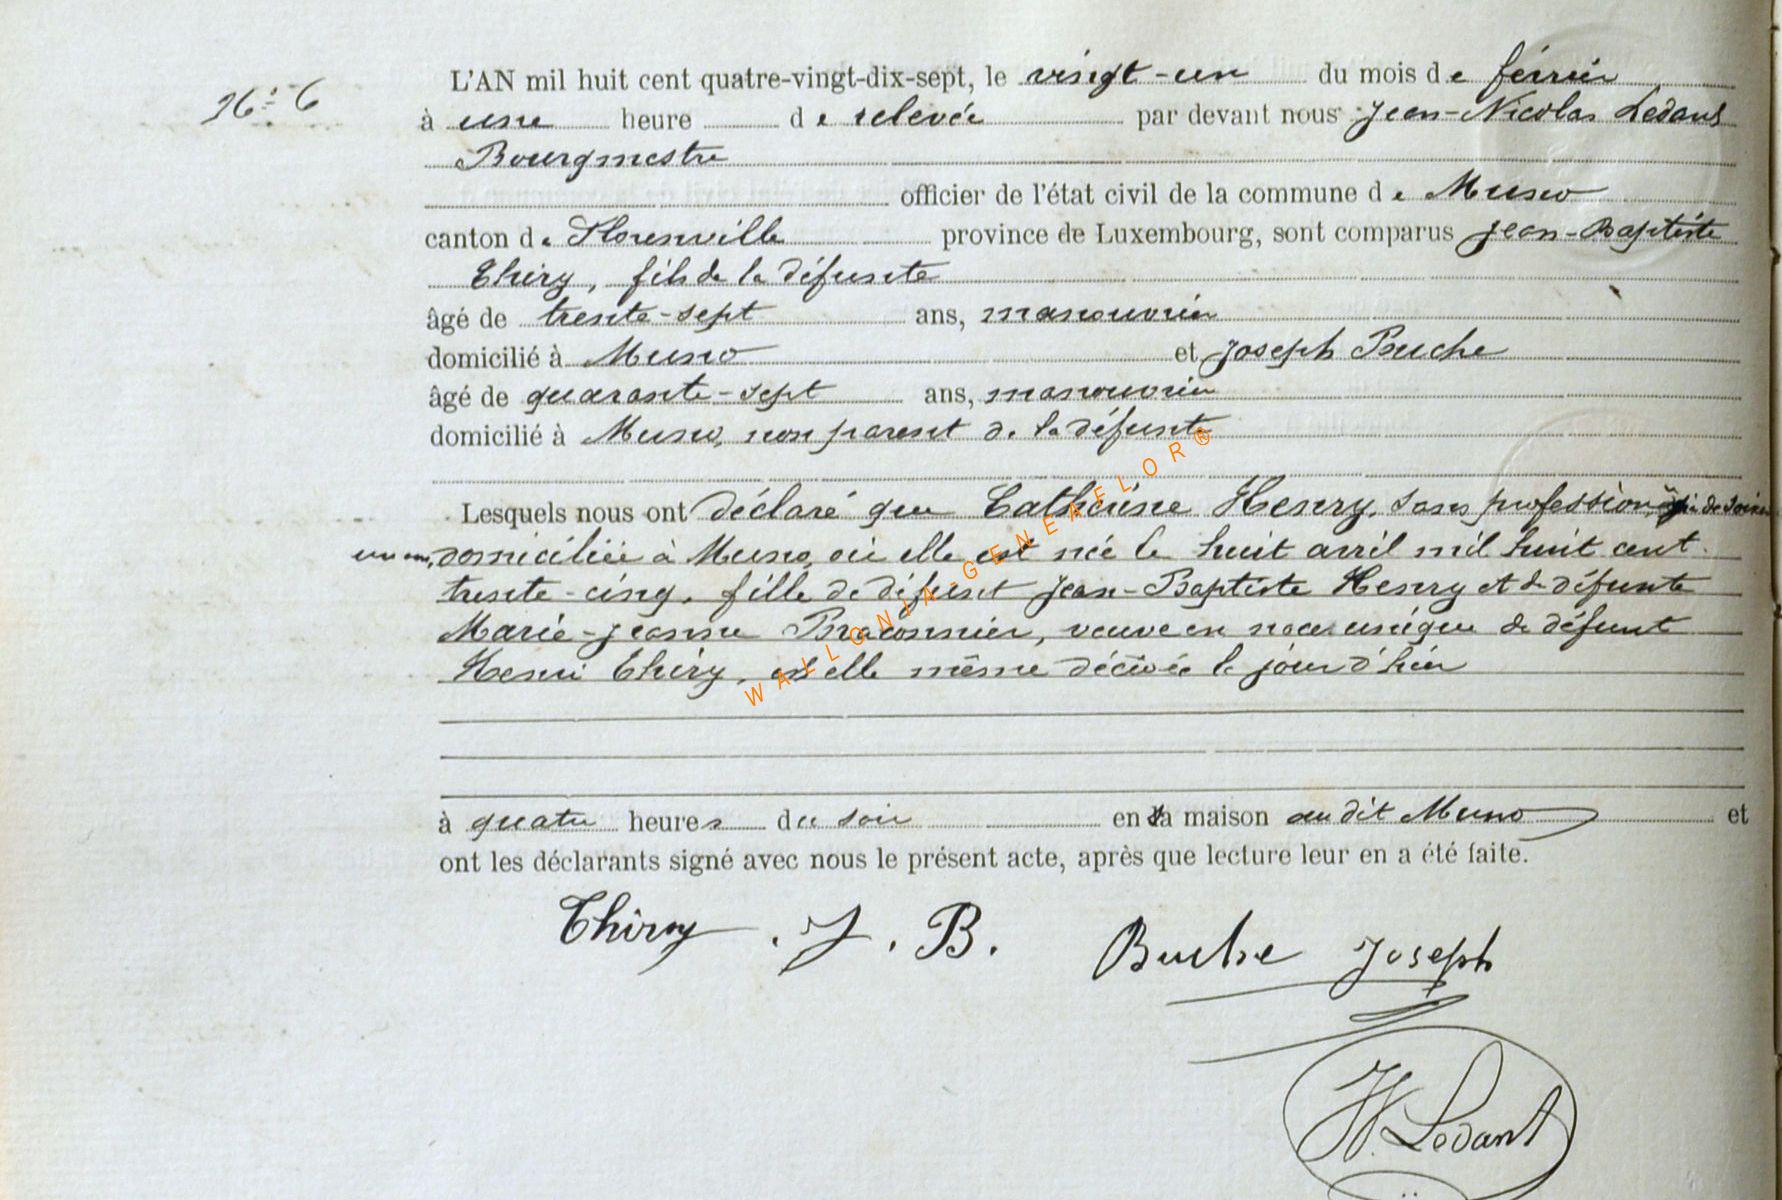 N° 6
L'AN mil huit cent quatre-vingt-dix-sept, le vingt-un du mois de février
à une heure de relevée par devant nous Jean-Nicolas Ledant
Bourgmestre
officier de l'état civil de la commune de Muno
canton de Florenville province de Luxembourg, sont comparus Jean-Baptiste
Thiry, fils de la défunte
âgé de trente-sept ans, manouvrier
domicilié à Muno et Joseph Buche
âgé de quarante-sept ans, manouvrier
domicilié à Muno, non parent de la défunte
Lesquels nous ont déclaré que Catherine Henry, sans profession, âgée de soixante
un ans, domiciliée à Muno, où elle est née le huit avril mil huit cent
trente-cinq, fille de défunt Jean-Baptiste Henry et de défunte
Marie-Jeanne Braconnier, veuve en noces unique de défunt
Henri Thiry, est elle même décédée le jour d'hier
à quatre heures du soir en sa maison audit Muno et
ont les déclarants signé avec nous le présent acte, après que lecture leur en a été faite.
Thiry . J . B. Buche Joseph
N. Ledant
WALLONIA-GENEAFLOR®